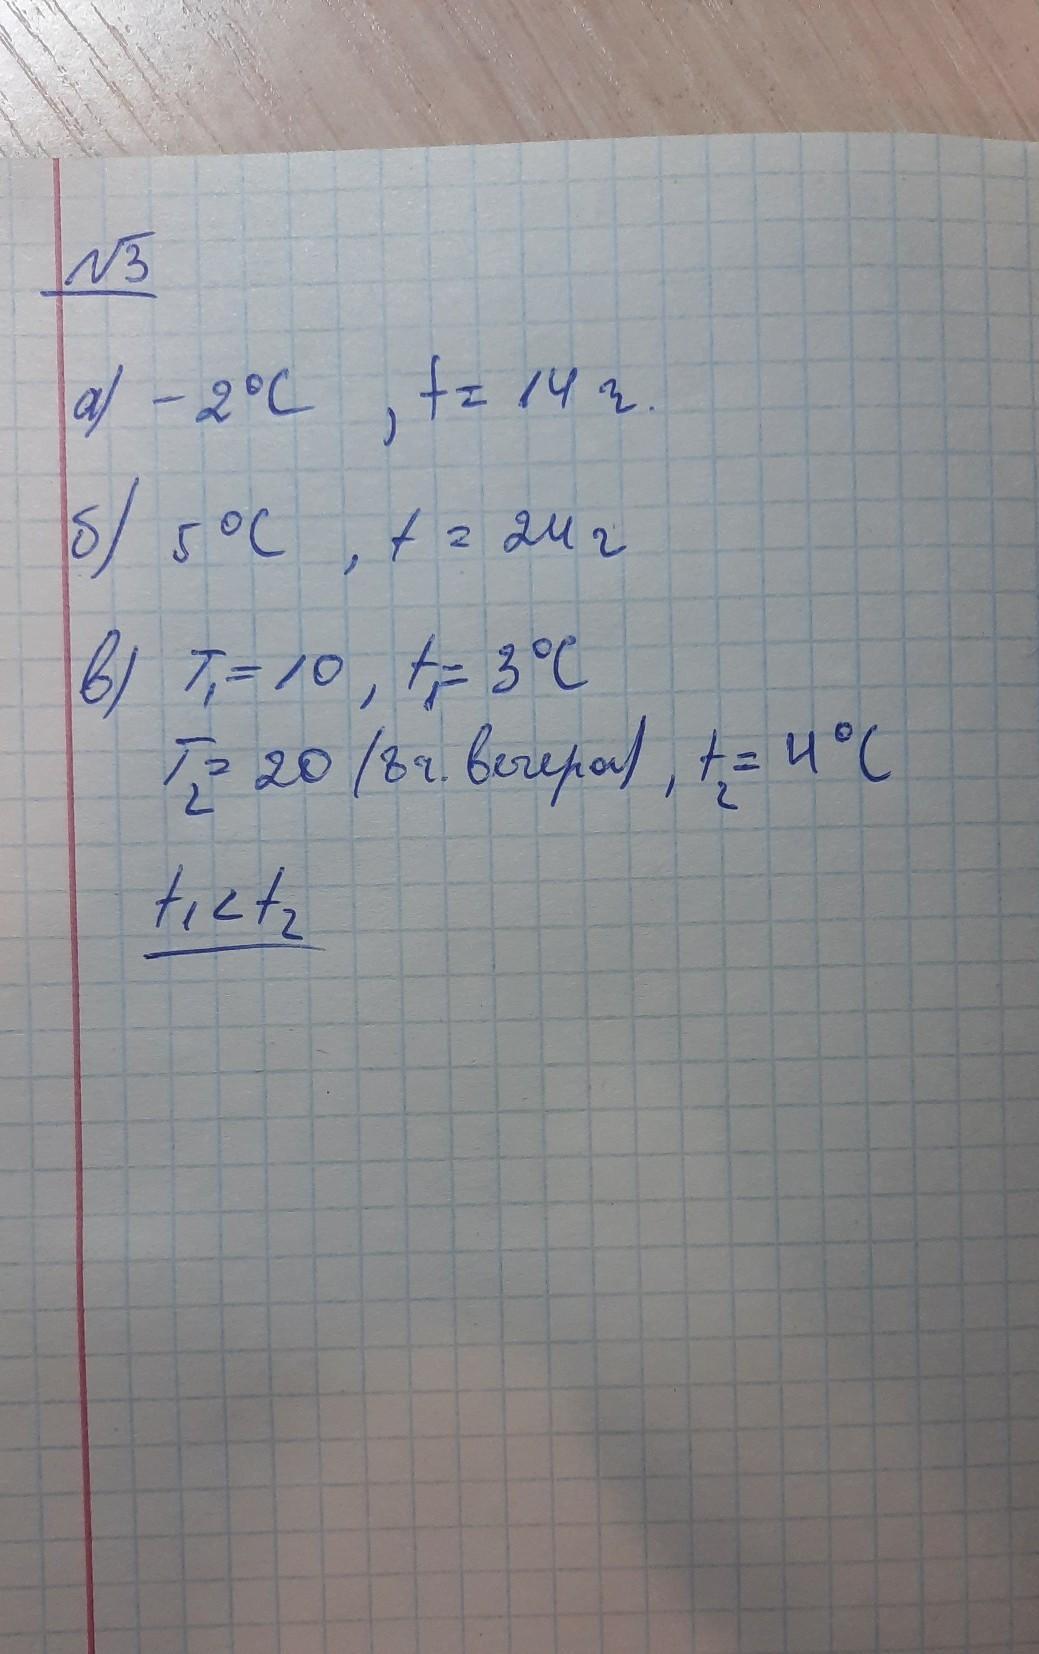 №3
а) -2°C , t = 14 ч.
б) 5°C , t = 24 ч
в) T₁ = 10 , t₁ = 3°C
T₂ = 20 (8 ч. вечера) , t₂ = 4°C
t₁ < t₂